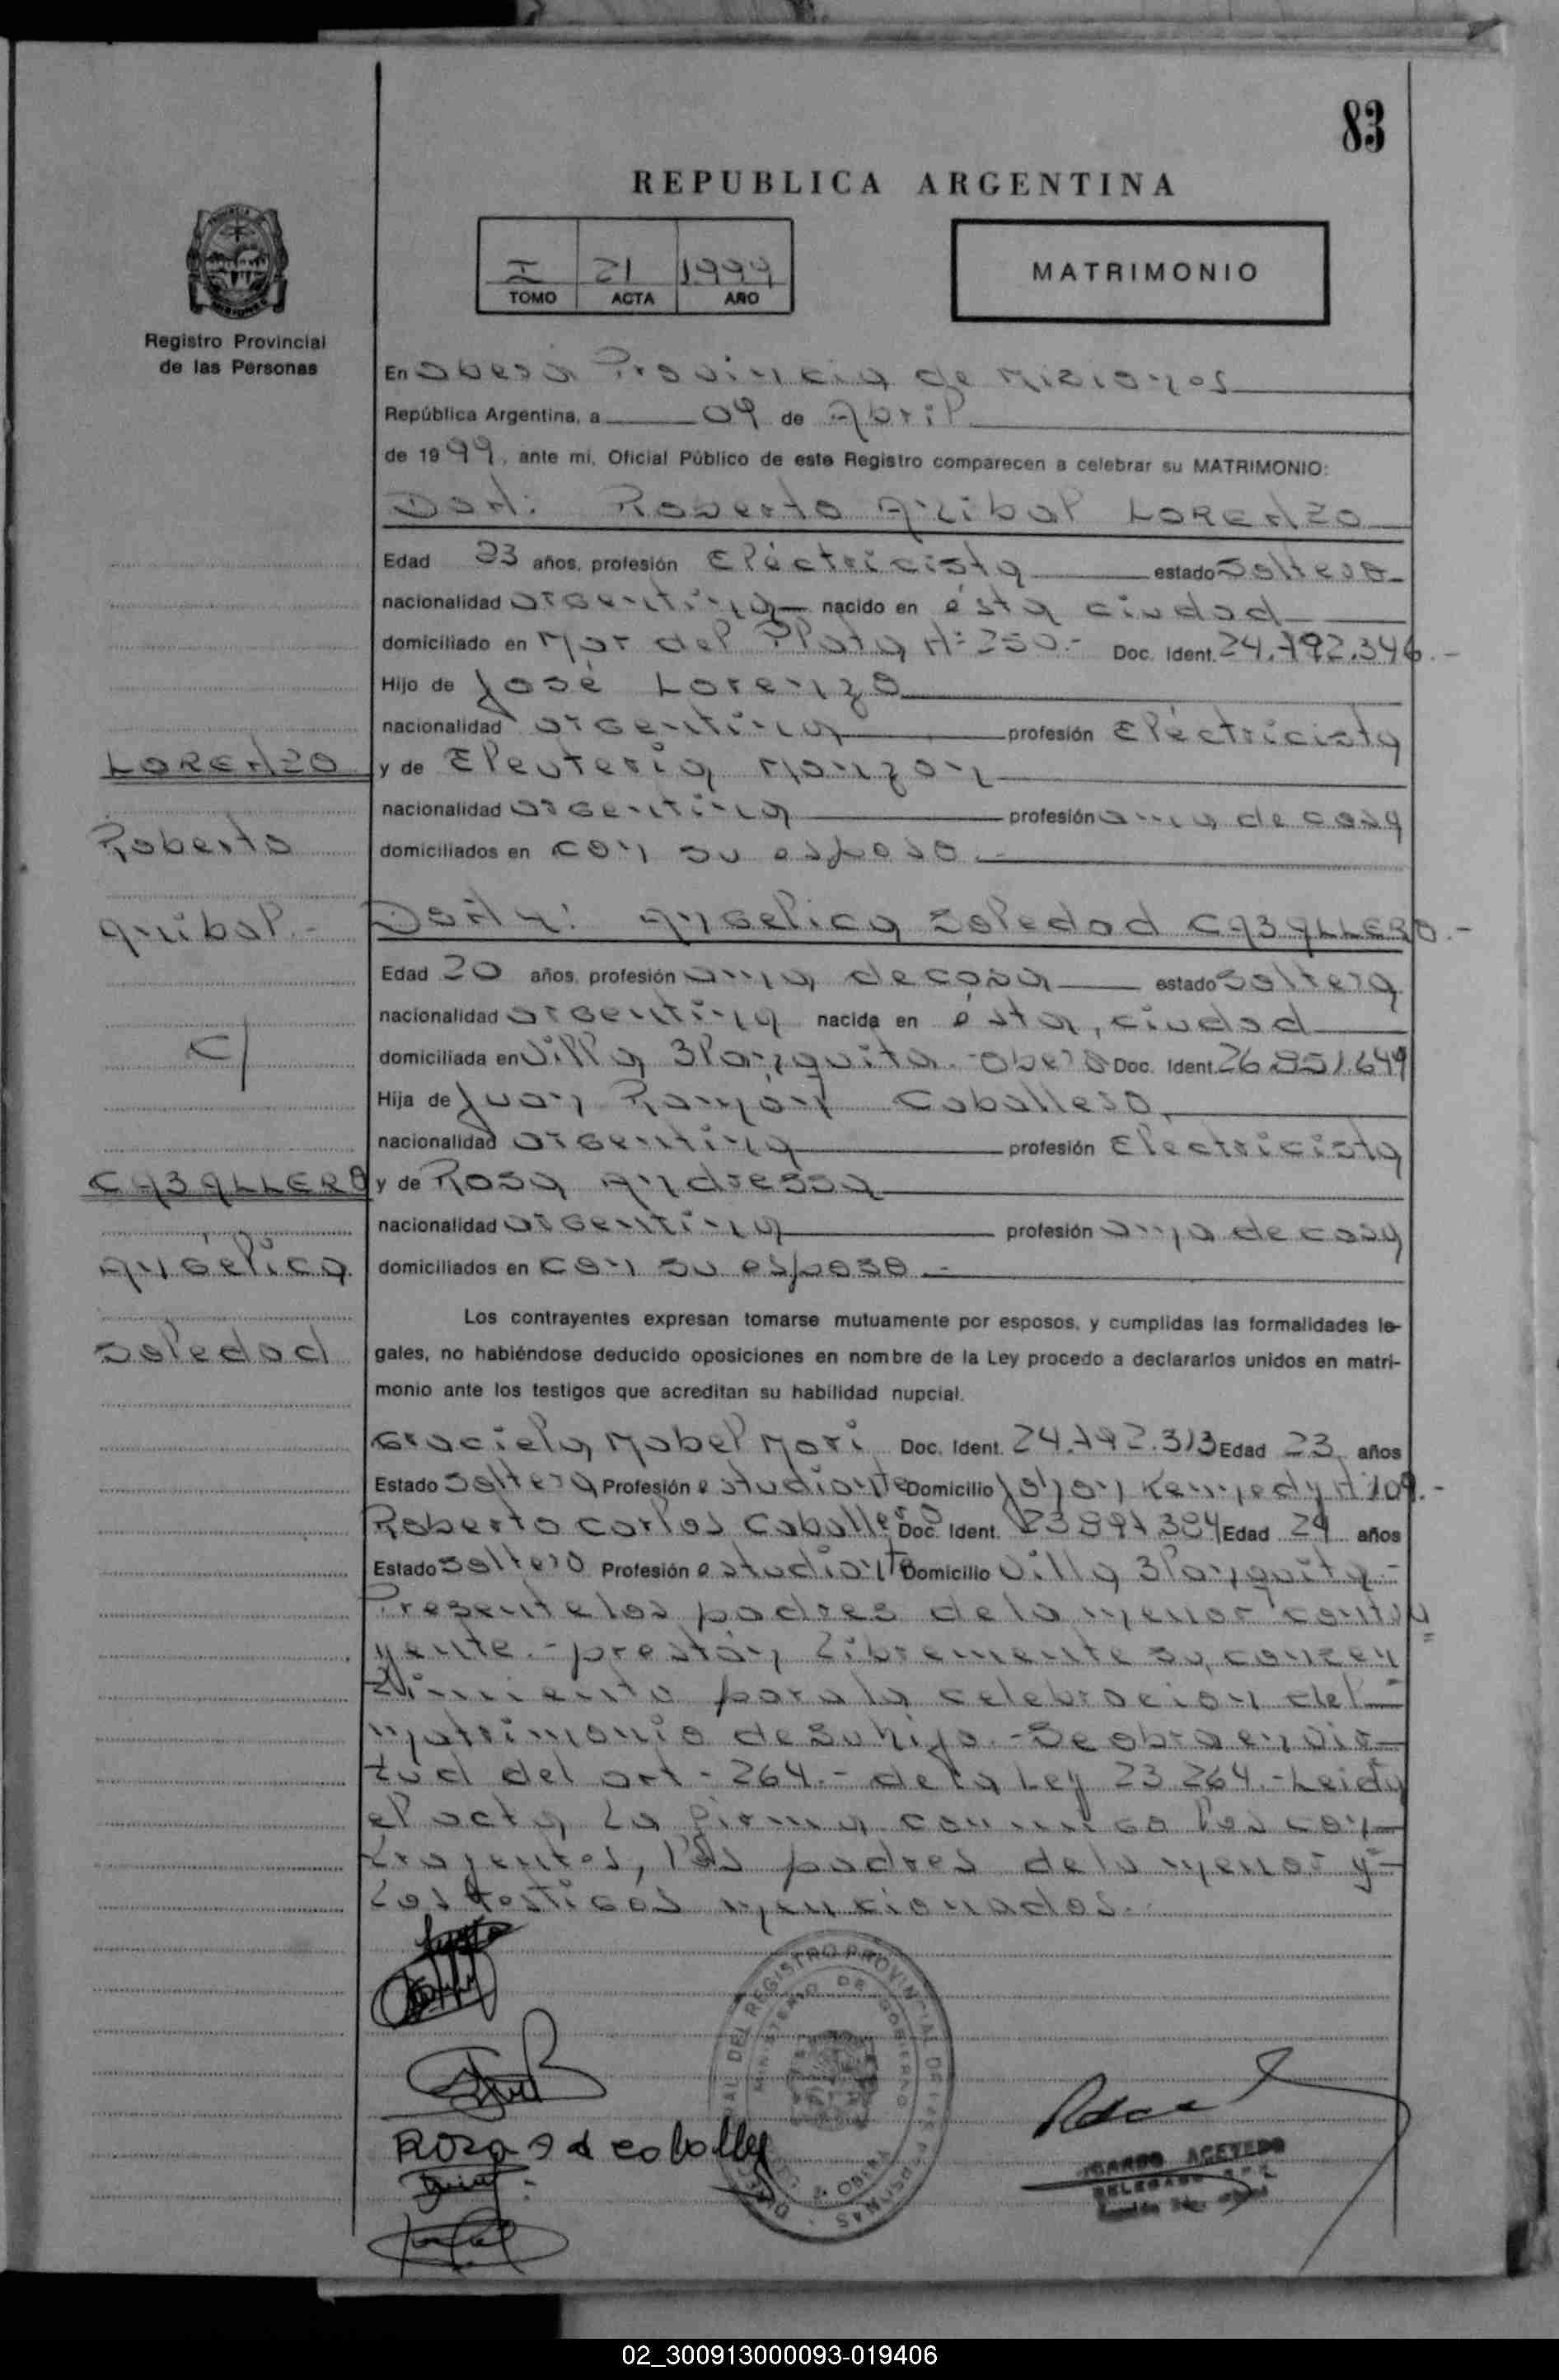 83
REPUBLICA ARGENTINA
I 21 1999
TOMO ACTA AÑO
MATRIMONIO
Registro Provincial
de las Personas
En Oberá Provincia de Misiones
República Argentina, a 09 de Abril
de 1999, ante mi, Oficial Público de este Registro comparecen a celebrar su MATRIMONIO:
Don: Roberto Anibal LORENZO
Edad 23 años, profesión Eléctricista estado soltero
nacionalidad argentina nacido en ésta ciudad
domiciliado en Mar del Plata N= 250.- Doc. Ident. 24.792.346.-
Hijo de José Lorenzo
nacionalidad argentina profesión Eléctricista
LORENZO
y de Eleuteria Monzon
nacionalidad argentina profesión ama de casa
Roberto
domiciliados en con su esposo.-
Anibal.-
Doña: Angelica Soledad CABALLERO.-
Edad 20 años, profesión ama de casa estado soltera
nacionalidad argentina nacida en ésta, ciudad
c/
domiciliada en Villa Blanquita.- Oberá Doc. Ident. 26.851.649
Hija de Juan Ramón Caballero
nacionalidad argentina profesión Electricista
CABALLERO
y de Rosa Andressa
nacionalidad argentina profesión ama de casa
Angélica
domiciliados en con su esposo.-
Los contrayentes expresan tomarse mutuamente por esposos, y cumplidas las formalidades le-
Soledad
gales, no habiéndose deducido oposiciones en nombre de la Ley procedo a declararlos unidos en matri-
monio ante los testigos que acreditan su habilidad nupcial.
Graciela Mabel Mori Doc. Ident. 24.792.313 Edad 23 años
Estado soltera Profesión estudiante Domicilio Jhon Kennedy N 109.-
Roberto Carlos Caballero Doc. Ident. 23897384 Edad 24 años
Estado soltero Profesión estudiante Domicilio Villa Blanquita.-
Presente los padres de la menor contra
yente.- prestan libremente su, consen
timiento para la celebracion del
matrimonio de su hija.- Se obra en vir-
tud del art- 264.- de la Ley 23.264.- Leida
el acta La firma conmigo los con-
trayentes, los padres de la menor y-
Los testigos mencionados.-
Rosa A d caballe
REGISTRO PROVINCIAL DE LAS PERSONAS
MINISTERIO DE GOBIERNO
OBERA
ACEVEDO
DELEGADO
02_300913000093-019406